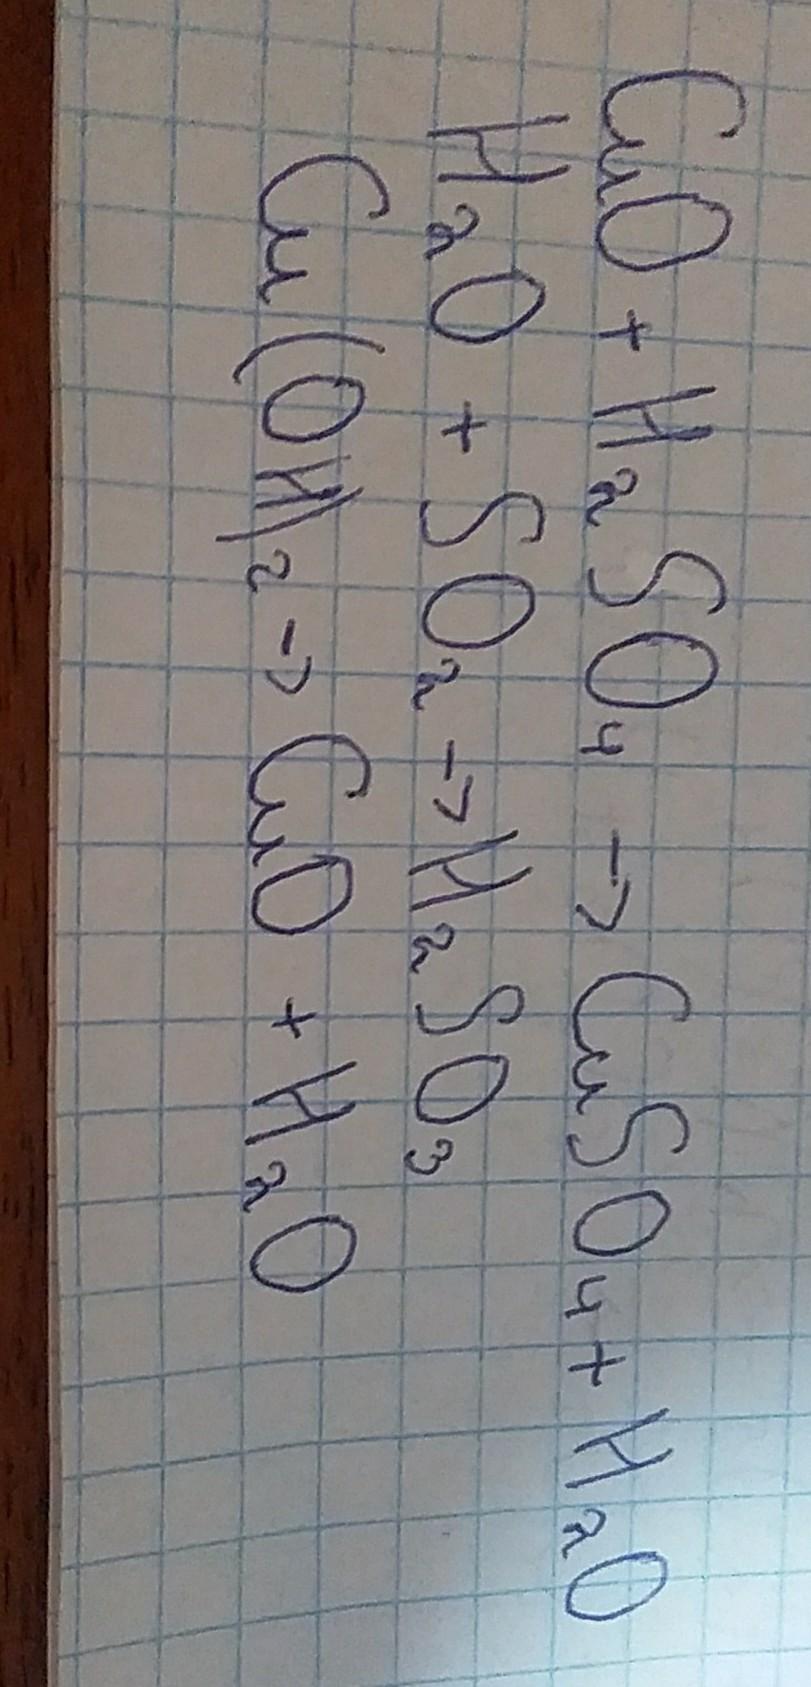 CuO + H₂SO₄ → CuSO₄ + H₂O
H₂O + SO₂ → H₂SO₃
Cu(OH)₂ → CuO + H₂O